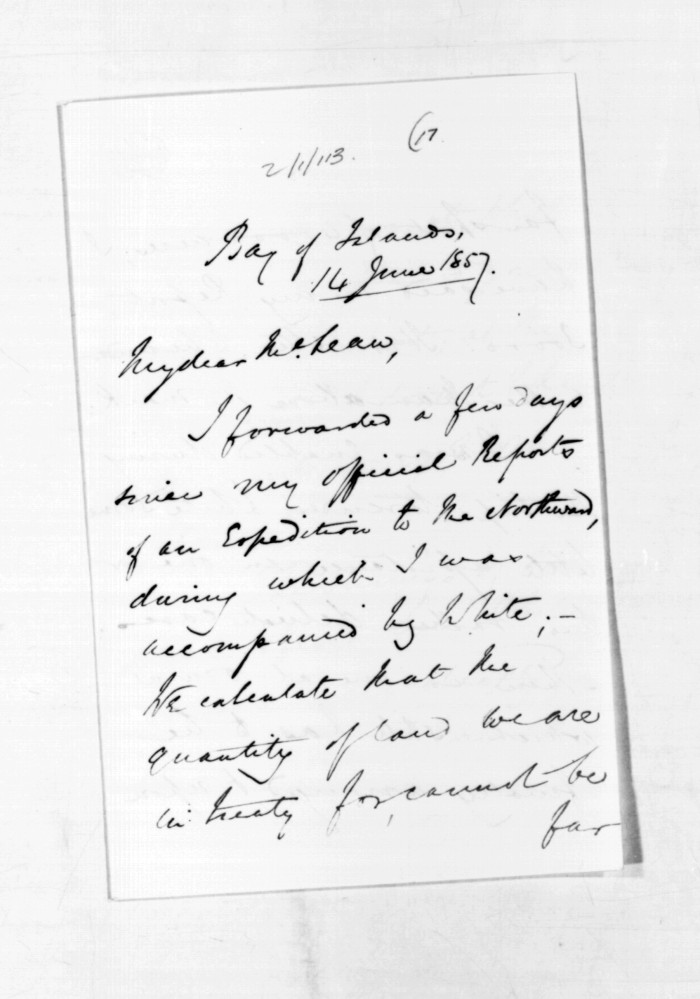 (17
2/1/113.
Bay of Islands,
14 June 1857.
My dear McLean,
I forwarded a few days
since my official Reports
of an Expedition to the Northward,
during which I was
accompanied by White; –
We calculate that the
quantity of land we are
in treaty for, cannot be
far